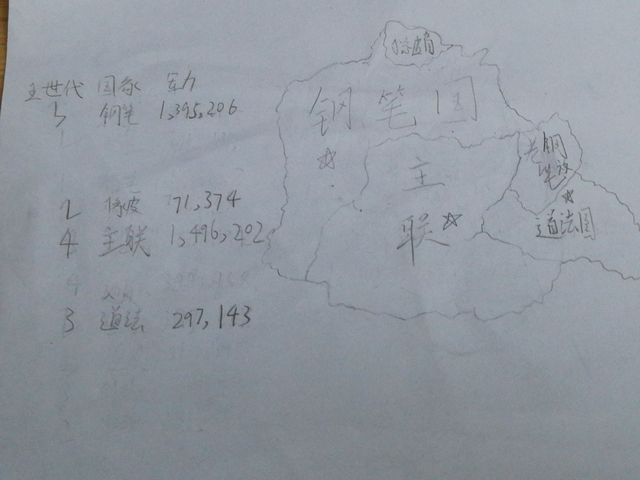 王世代 国家 军力
5 钢笔 1,395,206
2 橡皮 71,374
4 主联 1,496,202
3 道法 297,143
橡皮
钢笔国
主
联
钢
笔
道法国